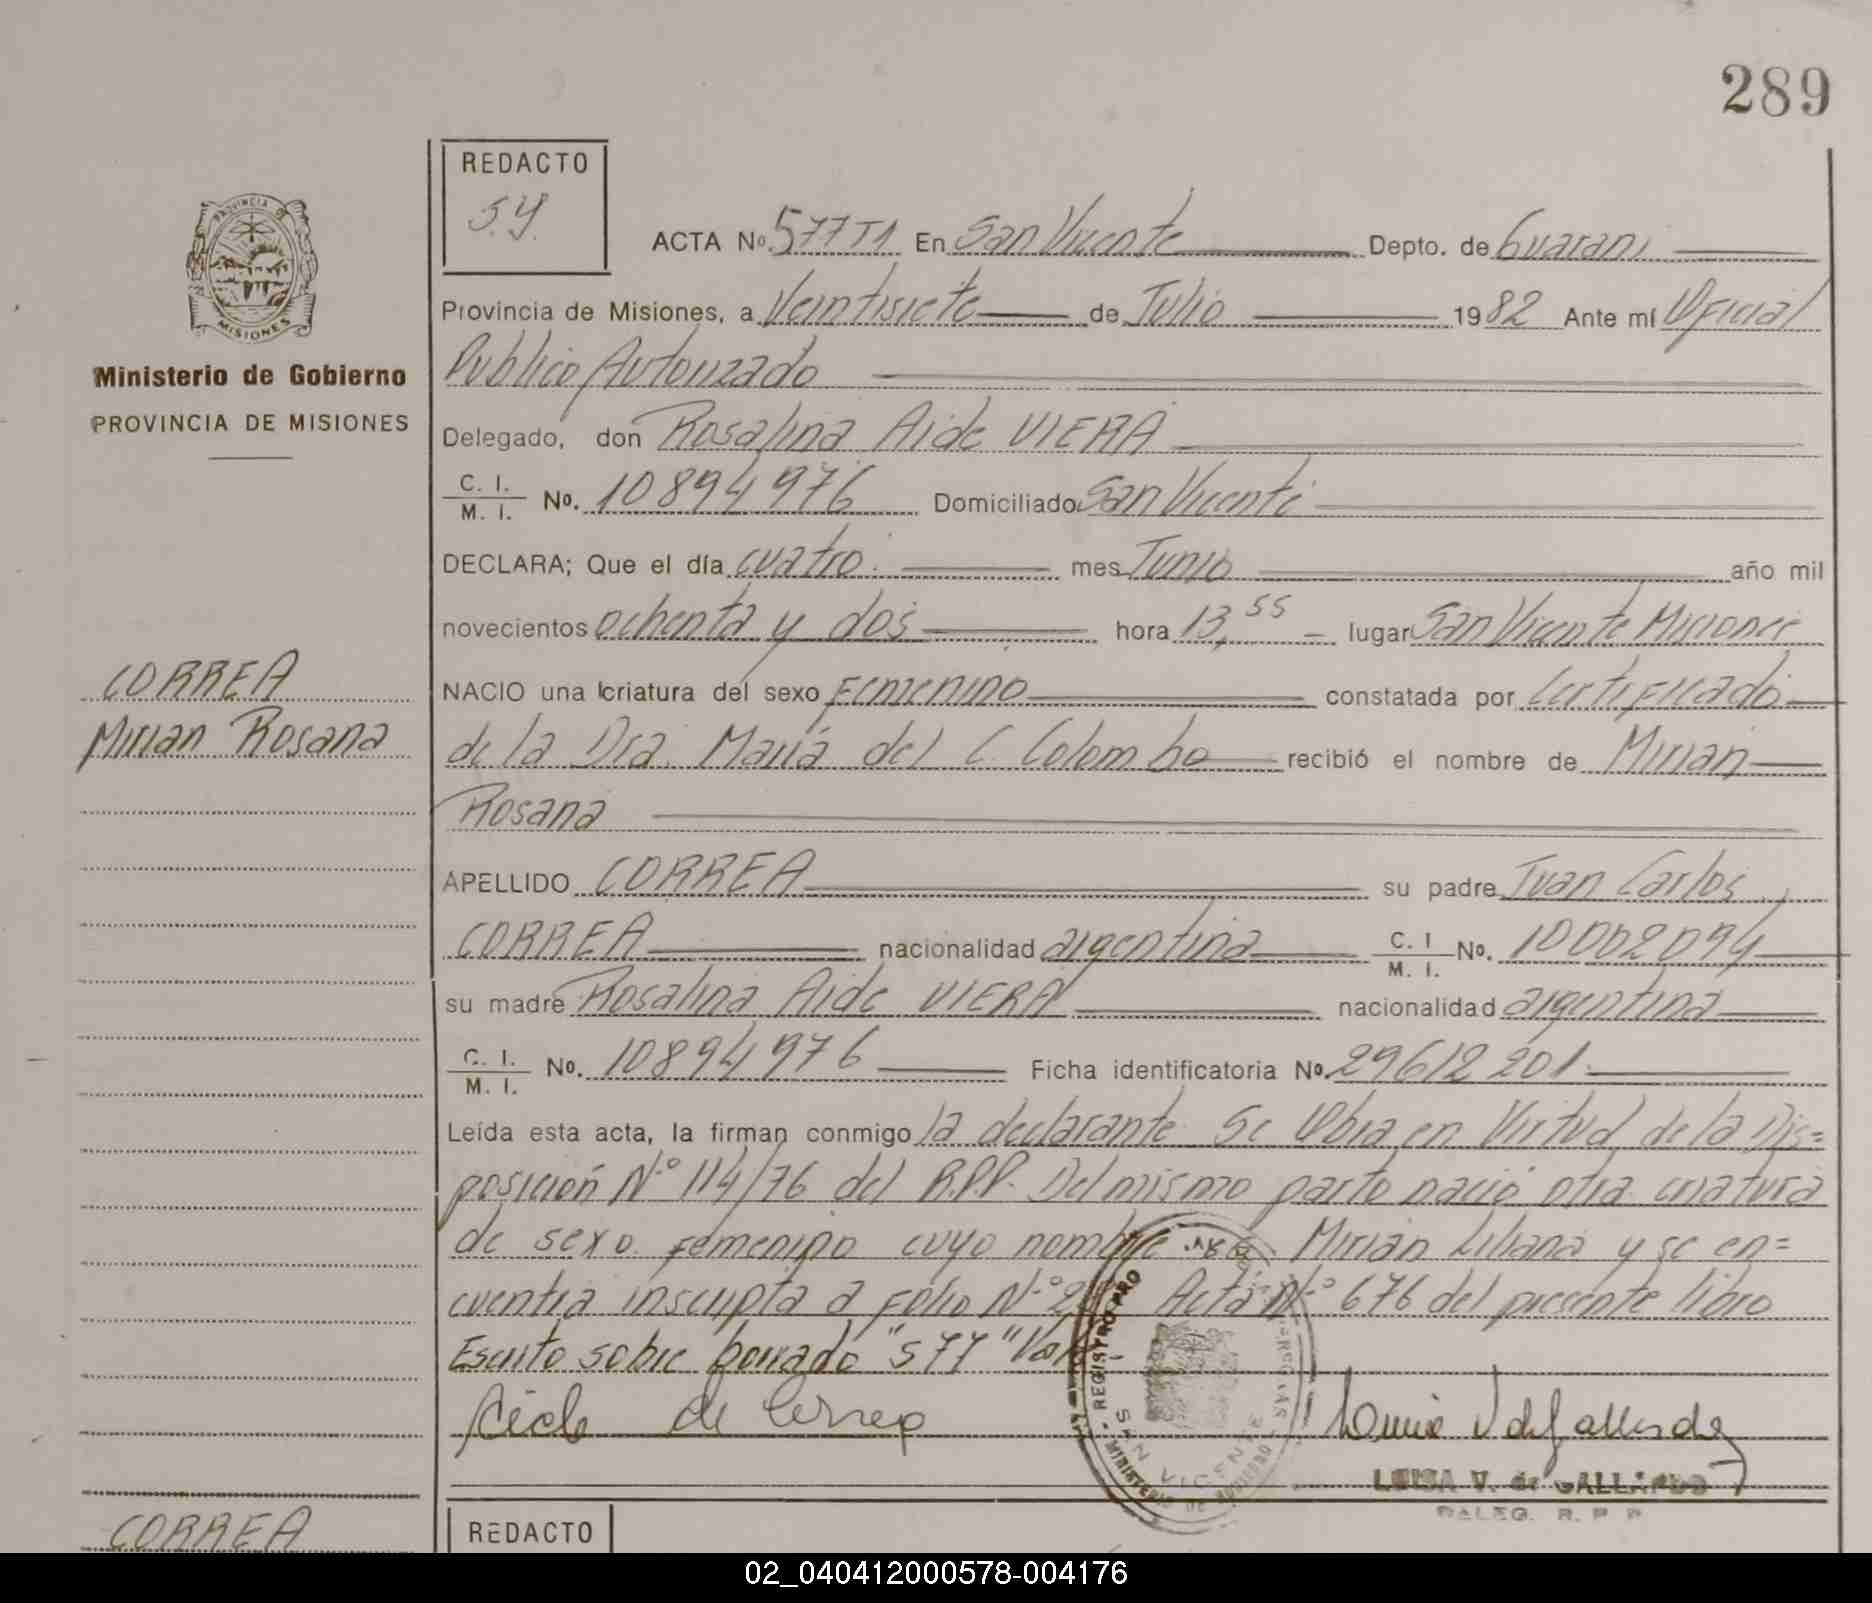 289
REDACTO
S.Y.
ACTA No. 577 T1 En San Vicente Depto. de Guarani
Provincia de Misiones, a Veintisiete de Julio 1982 Ante mí Oficial
Publico Autorizado
Delegado, don Rosalina Aide VIERA
C. I.
M. I. No. 10894976 Domiciliado San Vicente
DECLARA; Que el día cuatro. mes Junio año mil
novecientos ochenta y dos hora 13,55 lugar San Vicente Misiones
NACIO una criatura del sexo Femenino constatada por Certificado
de la Dra. María del C. Colombo recibió el nombre de Mirian
Rosana
APELLIDO CORREA su padre Juan Carlos
CORREA nacionalidad argentina C. I
M. I. No. 10002094
su madre Rosalina Aide VIERA nacionalidad argentina
C. I.
M. I. No. 10894976 Ficha identificatoria No. 29612201.
Leída esta acta, la firman conmigo la declarante. Se Obra en Virtud de la Dis=
posición N° 114/76 del R.P.P. Del mismo parto nació otra criatura
de sexo femenino cuyo nombre Mirian Liliana y se en=
cuentra inscripta a Folio N° Acta N° 676 del presente libro
Escrito sobre borrado "577"
de Correa
LUISA V. de GALLARDO
DALEG. R. P. P.
PROVINCIA DE
MISIONES
Ministerio de Gobierno
PROVINCIA DE MISIONES
CORREA
Mirian Rosana
CORREA
REGISTRO PRO
SAN VICENTE
MINISTERIO DE GOBIERNO
REDACTO
02_040412000578-004176